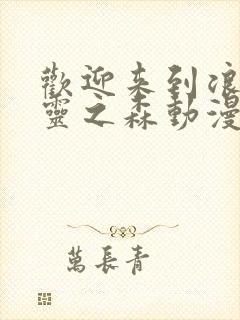 歡迎来到浪
靈之森動漫
萬長青